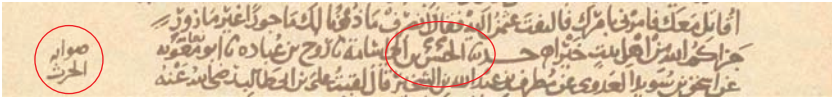 أقاتل معك فأمرني بأمرك قال فالتفت عمر إليه فقال انصرف مأذونا لك مأجورا غير مأزور
جزاكم الله من أهل بيت خيرا حدثنا الحسن بن أبي أسامة نا روح بن عباده نا أبو نعامه
عن إسحق بن سويد العدوي عن مطرف بن عبد الله بن الشخير قال لقيت علي بن أبي طالب رضي الله عنه
صوابه
الحرث